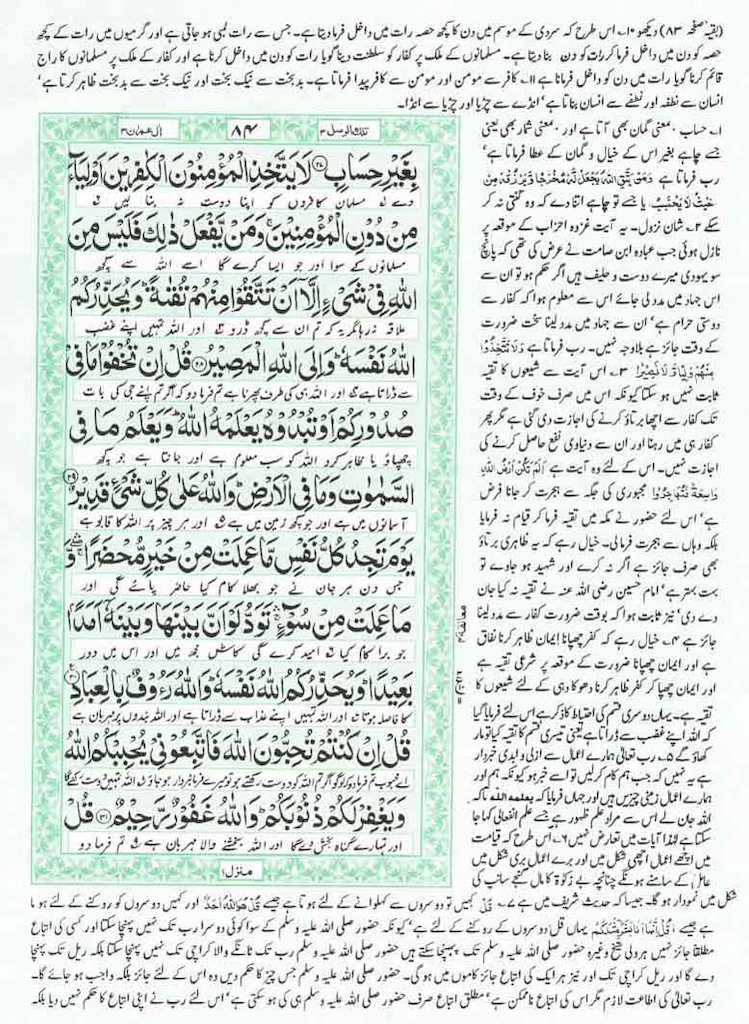 (بقیہ صفحہ ۸۳) دیکھو ۱۰۔ اس طرح کہ سردی کے موسم میں دن کا کچھ حصہ رات میں داخل فرما دیتا ہے۔ جس سے رات لمبی ہو جاتی ہے اور گرمیوں میں رات کے کچھ
حصہ کو دن میں داخل فرما کر رات کو دن بنا دیتا ہے۔ مسلمانوں کے ملک پر کفار کو سلطنت دینا گویا رات کو دن میں داخل کرنا ہے اور کفار کے ملک پر مسلمانوں کا راج
قائم کرنا گویا رات میں دن کو داخل فرمانا ہے ۱۱۔ کافر سے مومن اور مومن سے کافر پیدا فرماتا ہے۔ بدبخت سے نیک بخت اور نیک بخت سے بدبخت ظاہر کرتا ہے‘
انسان سے نطفہ اور نطفے سے انسان بناتا ہے‘ انڈے سے چڑیا اور چڑیا سے انڈا۔
تلك الرسل ۳
۸۴
ال عمران ۳
بِغَيْرِ حِسَابٍ ۲۷ لَا يَتَّخِذِ الْمُؤْمِنُوْنَ الْكٰفِرِيْنَ اَوْلِيَآءَ
دے مسلمان کافروں کو اپنا دوست نہ بنا لیں
مِنْ دُوْنِ الْمُؤْمِنِيْنَ وَمَنْ يَّفْعَلْ ذٰلِكَ فَلَيْسَ مِنَ
مسلمانوں کے سوا اور جو ایسا کرے گا اسے اللہ سے کچھ
اللّٰهِ فِيْ شَيْءٍ اِلَّآ اَنْ تَتَّقُوْا مِنْهُمْ تُقٰىةً وَيُحَذِّرُكُمُ
علاقہ نہ رہا مگر یہ کہ تم ان سے کچھ ڈرو اور اللہ تمہیں اپنے غضب
اللّٰهُ نَفْسَهٗ وَاِلَى اللّٰهِ الْمَصِيْرُ ۲۸ قُلْ اِنْ تُخْفُوْا مَا فِيْ
سے ڈراتا ہے اور اللہ ہی کی طرف پھرنا ہے تم فرما دو کہ اگر تم اپنے جی کی بات
صُدُوْرِكُمْ اَوْ تُبْدُوْهُ يَعْلَمْهُ اللّٰهُ وَيَعْلَمُ مَا فِي
چھپاؤ یا ظاہر کرو اللہ کو سب معلوم ہے اور جانتا ہے جو کچھ
السَّمٰوٰتِ وَمَا فِي الْاَرْضِ وَاللّٰهُ عَلٰى كُلِّ شَيْءٍ قَدِيْرٌ ۲۹
آسمانوں میں ہے اور جو کچھ زمین میں ہے اور ہر چیز پر اللہ کا قابو ہے
يَوْمَ تَجِدُ كُلُّ نَفْسٍ مَّا عَمِلَتْ مِنْ خَيْرٍ مُّحْضَرًا وَّ
جس دن ہر جان نے جو بھلا کام کیا حاضر پائے گی اور
مَا عَمِلَتْ مِنْ سُوْٓءٍ تَوَدُّ لَوْ اَنَّ بَيْنَهَا وَبَيْنَهٗٓ اَمَدًۢا
جو برا کام کیا امید کرے گی کاش مجھ میں اور اس میں دور
بَعِيْدًا وَيُحَذِّرُكُمُ اللّٰهُ نَفْسَهٗ وَاللّٰهُ رَءُوْفٌۢ بِالْعِبَادِ ۳۰
کا فاصلہ ہوتا اور اللہ تمہیں اپنے عذاب سے ڈراتا ہے اور اللہ بندوں پر مہربان ہے
قُلْ اِنْ كُنْتُمْ تُحِبُّوْنَ اللّٰهَ فَاتَّبِعُوْنِيْ يُحْبِبْكُمُ اللّٰهُ
اے محبوب تم فرما دو کہ لوگو اگر تم اللہ کو دوست رکھتے ہو تو میرے فرمانبردار ہو جاؤ اللہ تمہیں دوست رکھے گا
وَيَغْفِرْ لَكُمْ ذُنُوْبَكُمْ وَاللّٰهُ غَفُوْرٌ رَّحِيْمٌ ۳۱ قُلْ
اور تمہارے گناہ بخش دے گا اور اللہ بخشنے والا مہربان ہے تم فرما دو
منزل ۱
۱۔ حساب بمعنی گمان بھی آتا ہے اور بمعنی شمار بھی یعنی
جسے چاہے بغیر اس کے خیال و گمان کے عطا فرماتا ہے‘
رب فرماتا ہے وَمَنْ يَّتَّقِ اللّٰهَ يَجْعَلْ لَّهٗ مَخْرَجًا وَّيَرْزُقْهُ مِنْ
حَيْثُ لَا يَحْتَسِبُ یا جسے تو چاہے اتنا دے کہ وہ گنتی نہ کر
سکے ۲۔ شان نزول۔ یہ آیت غزوہ احزاب کے موقعہ پر
نازل ہوئی جب عبادہ ابن صامت نے عرض کی تھی کہ پانچ
سو یہودی میرے دوست و حلیف ہیں اگر حکم ہو تو ان سے
اس جہاد میں مدد لی جائے اس سے معلوم ہوا کہ کفار سے
دوستی حرام ہے‘ ان سے جہاد میں مدد لینا سخت ضرورت
کے وقت جائز ہے بلاوجہ نہیں۔ رب فرماتا ہے وَلَا تَتَّخِذُوْا
مِنْهُمْ وَلِيًّا وَّلَا نَصِيْرًا ۳۔ اس آیت سے شیعوں کا تقیہ
ثابت نہیں ہو سکتا کیونکہ اس میں صرف خوف کے وقت
تک کفار سے اچھا برتاؤ کرنے کی اجازت دی گئی ہے مگر پھر
کفار ہی میں رہنا اور ان سے دنیاوی نفع حاصل کرنے کی
اجازت نہیں۔ اس کے لئے وہ آیت ہے اَلَمْ تَكُنْ اَرْضُ اللّٰهِ
وَاسِعَةً فَتُهَاجِرُوْا مجبوری کی جگہ سے ہجرت کر جانا فرض
ہے‘ اس لئے حضور نے مکہ میں تقیہ فرما کر قیام نہ فرمایا
بلکہ وہاں سے ہجرت فرمالی۔ خیال رہے کہ یہ ظاہری برتاؤ
بھی صرف جائز ہے اگر نہ کرے اور شہید ہو جاوے تو
بہت بہتر ہے‘ امام حسین رضی اللہ عنہ نے تقیہ نہ کیا جان
دے دی‘ نیز ثابت ہوا کہ بوقت ضرورت کفار سے مدد لینا
جائز ہے ۴۔ خیال رہے کہ کفر چھپانا ایمان ظاہر کرنا نفاق
ہے اور ایمان چھپانا ضرورت کے موقعہ پر شرعی تقیہ ہے
اور ایمان چھپا کر کفر ظاہر کرنا دھوکا دہی کے لئے شیعوں کا
تقیہ ہے۔ یہاں دوسری قسم کی احتیاط کا ذکر ہے اس لئے فرمایا گیا
کہ اللہ اپنے غضب سے ڈراتا ہے یعنی تیسری قسم کا تقیہ کیا تو مار
کھاؤ گے ۵۔ رب تعالٰی ہمارے اعمال سے ازلی و ابدی خبردار
ہے یہ نہیں کہ جب ہم کام کر لیں تو اسے خبر ہو کیونکہ ہم اور
ہمارے اعمال زمنی چیزیں ہیں اور جہاں فرمایا کہ يعلمه الله تا کہ
اللہ جان لے اس سے مراد علم ظہور ہے جسے علم انفعالی کہا جا
سکتا ہے لہٰذا آیات میں تعارض نہیں ۶۔ اس طرح کہ قیامت
میں اچھے اعمال اچھی شکل میں اور برے اعمال بری شکل میں
عامل کے سامنے ہونگے چنانچہ بے زکوٰۃ کا مال گنجے سانپ کی
شکل میں نمودار ہو گا۔ جیسا کہ حدیث شریف میں ہے ۷۔ قُلْ کہیں تو دوسروں سے کہلوانے کے لئے ہوتا ہے جیسے قُلْ هُوَ اللّٰهُ اَحَدٌ اور کہیں دوسروں کو روکنے کے لئے ہوتا
ہے جیسے قُلْ اِنَّمَآ اَنَا بَشَرٌ مِّثْلُكُمْ یہاں قل دوسروں کے روکنے کے لئے ہے‘ کیونکہ حضور صلی اللہ علیہ وسلم کے سوا کوئی دوسرا رب تک نہیں پہنچا سکتا اور کسی کی اتباع
مطلقا جائز نہیں ہر ولی شیخ وغیرہ حضور صلی اللہ علیہ وسلم تک پہنچا سکتے ہیں حضور صلی اللہ علیہ وسلم رب تک ٹانگے والا کراچی تک نہیں پہنچا سکتا بلکہ ریل تک پہنچا
دے گا اور ریل کراچی تک اور نیز ہر ایک کی اتباع جائز کاموں میں ہوگی۔ حضور صلی اللہ علیہ وسلم جس چیز کا حکم دیں وہ اس کے لئے جائز بلکہ واجب ہو جائے گا۔
رب تعالٰی کی اطاعت لازم مگر اس کی اتباع ناممکن ہے‘ مطلق اتباع صرف حضور صلی اللہ علیہ وسلم ہی کی ہو سکتی ہے‘ اس لئے رب نے اپنی اتباع کا حکم نہیں دیا بلکہ